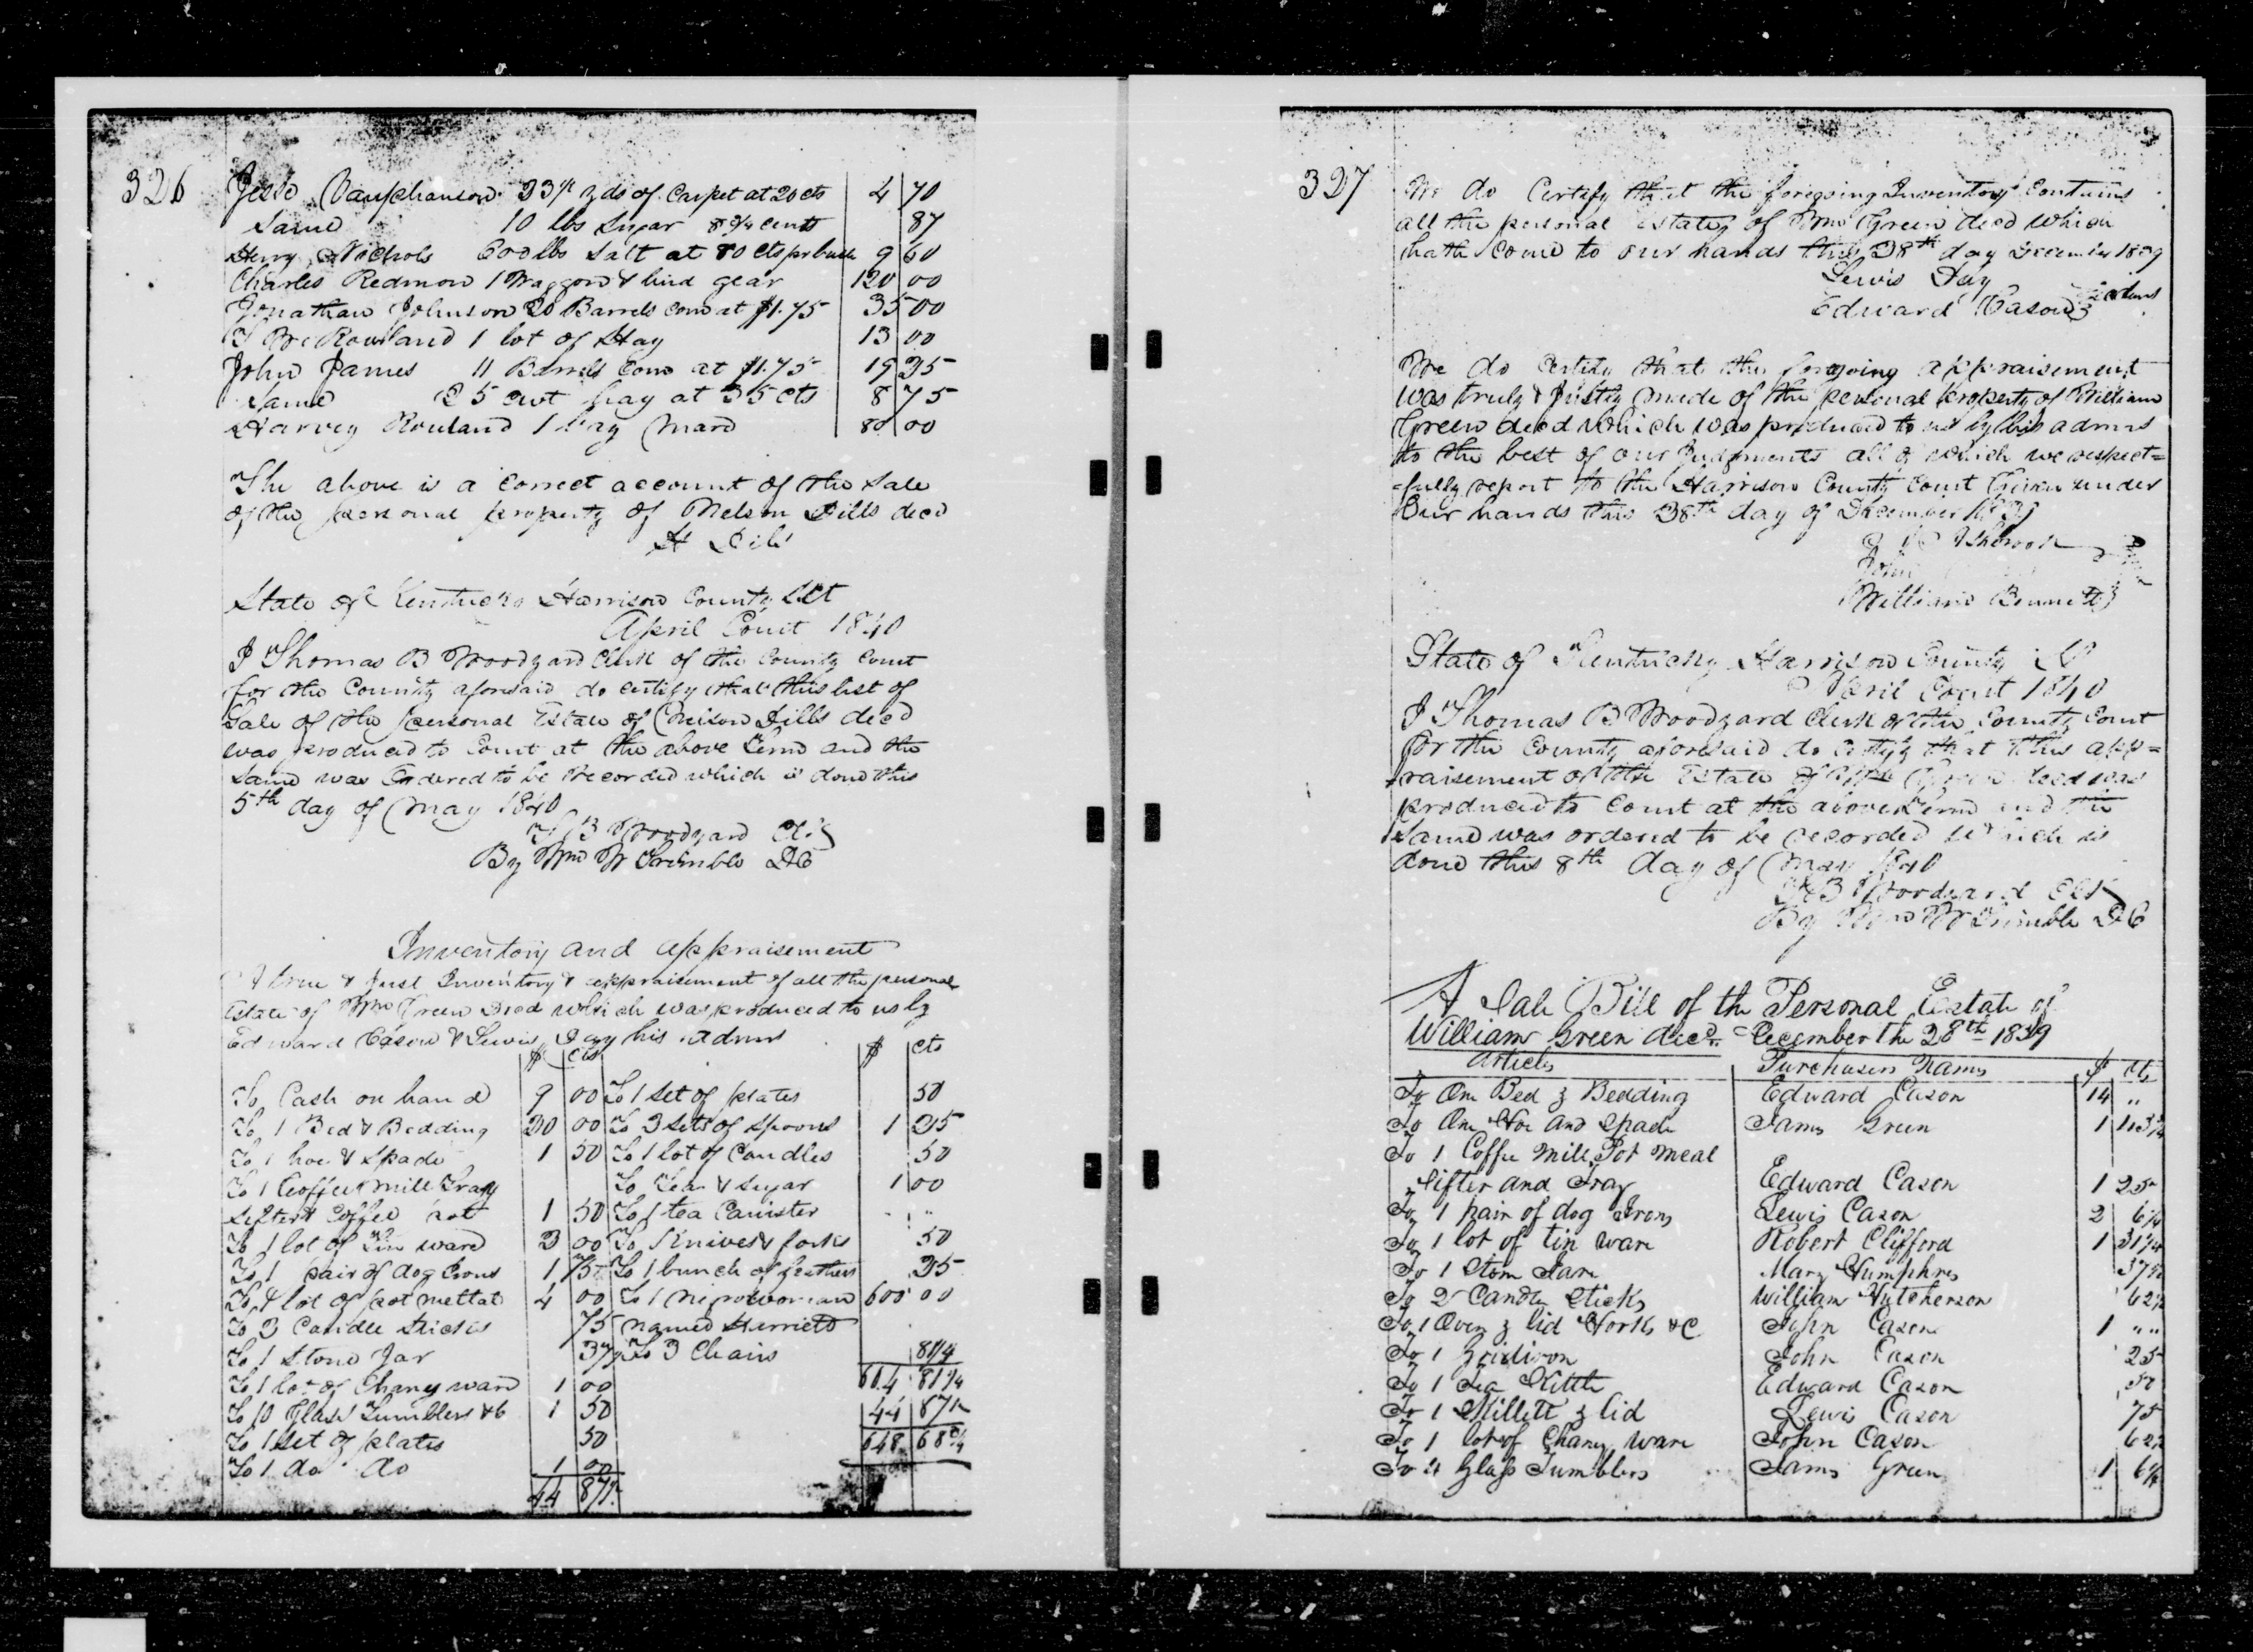 326
Jesse Vanphanson 23 1/2 yds of Carpet at 20 cts 4 70
Same 10 lbs Sugar 8 3/4 cents 87
Henry Nichols 600 lbs Salt at 80 cts pr bush 9 60
Charles Redmon 1 Waggon & hind gear 120 00
Jonathan Johnson 20 Barrels corn at $1.75 35 00
Rowland 1 lot of Hay 13 00
John James 11 Barrels Corn at $1.75 19 25
Same 25 cwt hay at 35 cts 8 75
Harvey Rowland 1 bay Mare 80 00
The above is a correct account of the sale
of the personal property of Nelson Dills decd
H Dills
State of Kentucky Harrison County Sct
April Court 1840
I Thomas B Woodyard Clerk of the County Court
for the County aforesaid do certify that this list of
Sale of the personal Estate of Nelson Dills decd
was produced to Court at the above Term and the
Same was Ordered to be Recorded which is done this
5th day of May 1840
T B Woodyard Clk
By Wm W Trimble DC
Inventory and appraisement
A true & Just Inventory & appraisement of all the personal
Estate of Wm Green Decd which was produced to us by
Edward Cason & Lewis Day his Admrs
$ cts $ cts
To Cash on hand 9 00 To 1 Set of plates 50
To 1 Bed & Bedding 20 00 To 3 Sets of Spoons 1 25
To 1 hoe & Spade 1 50 To 1 lot of Candles 50
To 1 Coffee mill Tray To Tea & Sugar 1 00
Sifter & Coffee pot 1 50 To 1 tea Canister " "
To 1 lot of Tin ware 3 00 To Knives & forks 50
To 1 pair of dog Irons 1 75 To 1 bunch of feathers 25
To 1 lot of pot mettal 4 00 To 1 negro woman 600 00
To 3 Candle Sticks 75 named Harriett
To 1 Stone Jar 37 1/2 To 3 Chairs 81 1/4
To 1 lot of Chaney ware 1 00 604 81 1/4
To 10 Glass Tumblers &c 1 50 44 87 1/2
To 1 Set of plates 50 648 68 3/4
To 1 do do 1 00
44 87 1/2
327
We do Certify that the foregoing Inventory Contains
all the personal Estate of Wm Green decd which
hath Come to our hands this 28th day December 1839
Lewis Day
Edward Cason
We do Certify that the foregoing appraisement
was truly & Justly made of the personal property of William
Green decd which was produced to us by his admrs
to the best of our Judgments all of which we respect=
=fully report to the Harrison County Court Given under
Our hands this 28th day of December 1839
John
William Bennett
State of Kentucky Harrison County Sct
April Court 1840
I Thomas B Woodyard Clerk of the County Court
for the County aforesaid do certify that this app=
=raisement of the Estate of Wm Green decd was
produced to Court at the above Term and the
Same was ordered to be recorded which is
done this 8th day of May 1840
T B Woodyard Clk
By Wm W Trimble DC
A Sale Bill of the Personal Estate of
William Green decd December the 28th 1839
Articles Purchasers Names $ cts
To One Bed & Bedding Edward Cason 14 "
To One Hoe and Spade James Green 1 13 3/4
To 1 Coffee Mill Pot meal
Sifter and Tray Edward Cason 1 25
To 1 pair of dog Irons Lewis Cason 2 6 1/4
To 1 lot of tin ware Robert Clifford 1 31 1/4
To 1 Stone Jare Mary Humphres 37 1/2
To 2 Candle Sticks William Hutcherson 62 1/2
To 1 Oven & lid Hooks &C John Cason 1 " "
To 1 Gridiron John Cason 25
To 1 Tea Kittle Edward Cason 50
To 1 Skillett & lid Lewis Cason 75
To 1 lot of Chaney ware John Cason 62 1/2
To 4 Glass Tumblers James Green 1 6 1/4